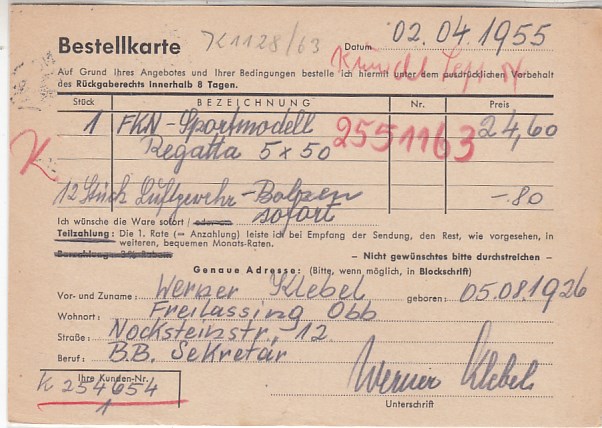 Bestellkarte K1128/63 Datum 02.04.1955
Auf Grund Ihres Angebotes und Ihrer Bedingungen bestelle ich hiermit unter dem ausdrücklichen Vorbehalt
des Rückgaberechts innerhalb 8 Tagen.
Stück BEZEICHNUNG Nr. Preis
1 FKN-Sportmodell 2551163 24,60
Regatta 5x50
12 Stück Luftgewehr-Bolzen -.80
sofort
Ich wünsche die Ware sofort / oder
Teilzahlung: Die 1. Rate (= Anzahlung) leiste ich bei Empfang der Sendung, den Rest, wie vorgesehen, in
weiteren, bequemen Monats-Raten.
Barzahlung: 3% Rabatt – Nicht gewünschtes bitte durchstreichen –
Genaue Adresse: (Bitte, wenn möglich, in Blockschrift)
Vor- und Zuname: Werner Klebel geboren: 05.08.1926
Wohnort: Freilassing Obb
Straße: Nocksteinstr. 12
Beruf: B.B. Sekretär
Ihre Kunden-Nr.
K 254654
1
Werner Klebel
Unterschrift